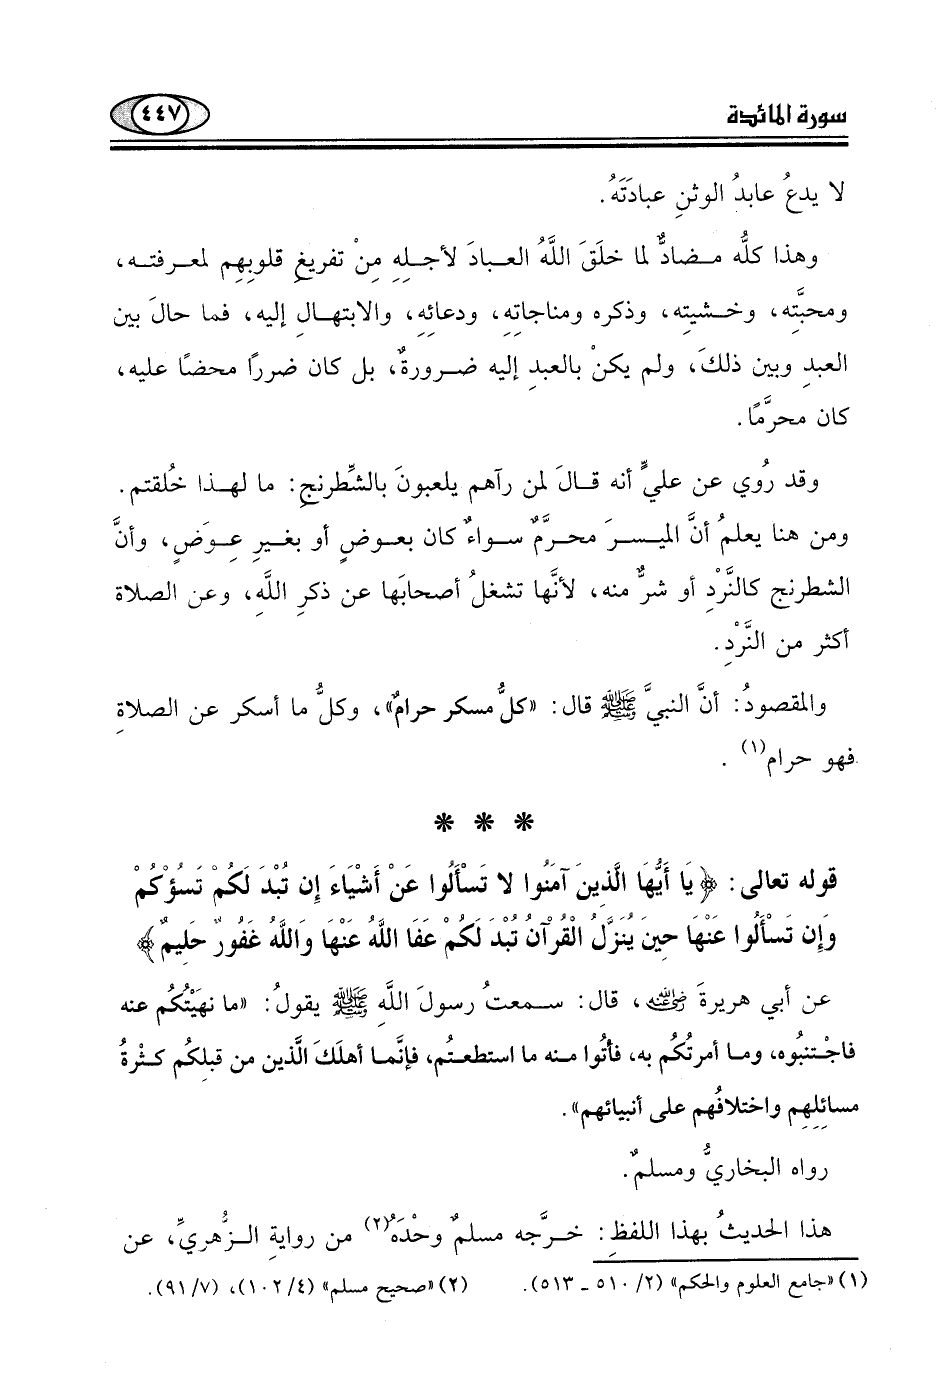 سورة المائدة
٤٤٧
لا يدعُ عابدُ الوثنِ عبادَتَهُ.
وهذا كلُّه مضادٌّ لما خلَقَ اللَّهُ العبادَ لأجلِهِ مِنْ تفريغِ قلوبِهِم لمعرفته،
ومحبَّتِه، وخشيتِه، وذكرِه ومناجاتِهِ، ودعائِهِ، والابتهالِ إليه، فما حالَ بين
العبدِ وبين ذلكَ، ولم يكنْ بالعبدِ إليه ضرورةٌ، بل كان ضررًا محضًا عليه،
كان محرَّمًا.
وقد رُوي عن عليٍّ أنه قالَ لمن رآهم يلعبونَ بالشِّطرنجِ: ما لهذا خُلقتم.
ومن هنا يعلمُ أنَّ الميسرَ محرَّمٌ سواءٌ كان بعوضٍ أو بغيرِ عِوَضٍ، وأنَّ
الشطرنج كالنَّرْدِ أو شرٌّ منه، لأنَّها تشغلُ أصحابَها عن ذكرِ اللَّهِ، وعن الصلاة
أكثر من النَّرْدِ.
والمقصودُ: أنَّ النبيَّ ﷺ قال: «كلُّ مسكر حرامٌ»، وكلُّ ما أسكر عن الصلاةِ
فهو حرام(١) .
* * *
قوله تعالى: ﴿يَا أَيُّهَا الَّذِينَ آمَنُوا لا تَسْأَلُوا عَنْ أَشْيَاءَ إِن تُبْدَ لَكُمْ تَسُؤْكُمْ
وَإِن تَسْأَلُوا عَنْهَا حِينَ يُنَزَّلُ الْقُرْآنُ تُبْدَ لَكُمْ عَفَا اللَّهُ عَنْهَا وَاللَّهُ غَفُورٌ حَلِيمٌ﴾
عن أبي هريرةَ رضي الله عنه، قال: سمعتُ رسولَ اللَّهِ ﷺ يقولُ: «ما نهيْتُكُم عنه
فاجْتنبُوه، وما أمرتُكُم به، فأتُوا منه ما استطعتُم، فإنَّما أهلَكَ الَّذين من قبلِكُم كثْرةُ
مسائلِهِم واختلافُهم على أنبيائهِم».
رواه البخاريُّ ومسلمٌ.
هذا الحديثُ بهذا اللفظِ: خرَّجه مسلمٌ وحْدَهُ(٢) من روايةِ الزُّهريِّ، عن
(١) «جامع العلوم والحكم» (٢/ ٥١٠ ـ ٥١٣). (٢) «صحيح مسلم» (٤/ ١٠٢)، (٧/ ٩١).